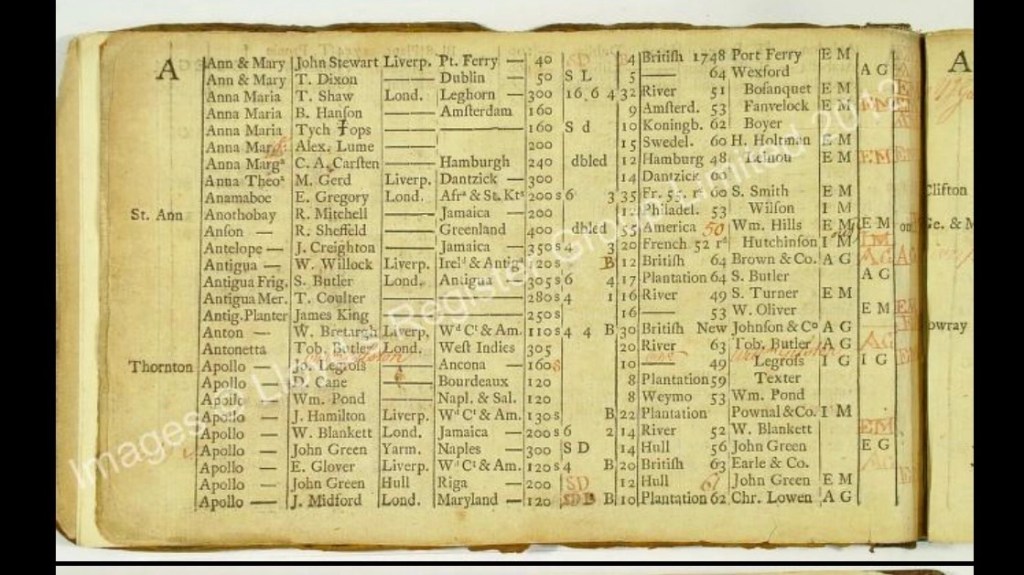 A Ann & Mary John Stewart Liverp. Pt. Ferry — 40 SD B 4 Britiſh 1748 Port Ferry E M A
Ann & Mary T. Dixon —— Dublin — 50 S L 5 —— 64 Wexford A G
Anna Maria T. Shaw Lond. Leghorn — 300 16,6 4 32 River 51 Boſanquet E M
Anna Maria B. Hanſon —— Amſterdam 160 9 Amſterd. 53 Fanvelock E M EM
Anna Maria Tych Tops —— —— 160 S d 10 Koningb. 62 Boyer
Anna Alex. Lume —— —— 200 15 Swedel. 60 H. Holtman E M
Anna Margª C. A. Carſten —— Hamburgh 240 dbled 12 Hamburg 48 E M EM
Anna Theoª M. Gerd Liverp. Dantzick — 300 14 Dantzick 60
Anamaboe E. Gregory Lond. Afrª & St. Ktˢ 200 s 6 3 35 Fr. 55. rᵈ 60 S. Smith E M Clifton
St. Ann Anothobay R. Mitchell —— Jamaica — 200 12 Philadel. 53 Wilſon I M
Anſon — R. Sheffeld —— Greenland 400 dbled 55 America 50 Wm. Hills E M E M
Antelope — J. Creighton —— Jamaica — 350 s 4 3 20 French 52 rᵈ Hutchinſon I M IM
Antigua — W. Willock Liverp. Irelᵈ & Antigª 120 s B 12 Britiſh 64 Brown & Co. A G AG
Antigua Frig. S. Butler Lond. Antigua — 305 s 6 4 17 Plantation 64 S. Butler A G
Antigua Mer. T. Coulter —— —— 280 s 4 1 16 River 49 S. Turner E M
Antig. Planter James King —— —— 250 s 16 —— 53 W. Oliver E M
Anton — W. Bretargh Liverp. Wᵈ Cᵗ & Am. 110 s 4 4 B 30 Britiſh New Johnſon & Cº A G owray
Antonetta Tob. Butler Lond. Weſt Indies 305 20 River 63 Tob. Butler A G AG
Thornton Apollo — Jo. Legroſs —— Ancona — 160 s 10 —— 49 Legroſs I G I G
Apollo — D. Cane —— Bourdeaux 120 8 Plantation 59 Texter
Apollo — Wm. Pond —— Napl. & Sal. 120 8 Weymo 53 Wm. Pond
Apollo — J. Hamilton Liverp. Wᵈ Cᵗ & Am. 130 s B 22 Plantation Pownal & Co. I M
Apollo — W. Blankett Lond. Jamaica — 200 s 6 2 14 River 52 W. Blankett EM
Apollo — John Green Yarm. Naples — 300 S D 14 Hull 56 John Green E G
Apollo — E. Glover Liverp. Wᵈ Cᵗ & Am. 120 s 4 B 20 Britiſh 63 Earle & Co. AG
Apollo — John Green Hull Riga — 200 SD 12 Hull 61 John Green E M
Apollo — J. Midford Lond. Maryland — 120 SD B 10 Plantation 62 Chr. Lowen A G